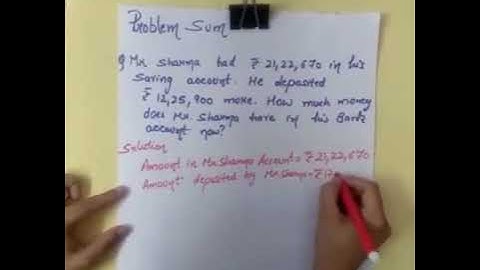 Problem Sum
Q Mr. Sharma had ₹ 21,22,670 in his
saving account. He deposited
₹ 12,25,900 more. How much money
does Mr. Sharma have in his Bank
account now?
Solution
Amount in Mr. Sharmas Account = ₹ 21,22,670
Amount deposited by Mr. Sharma = ₹ 12